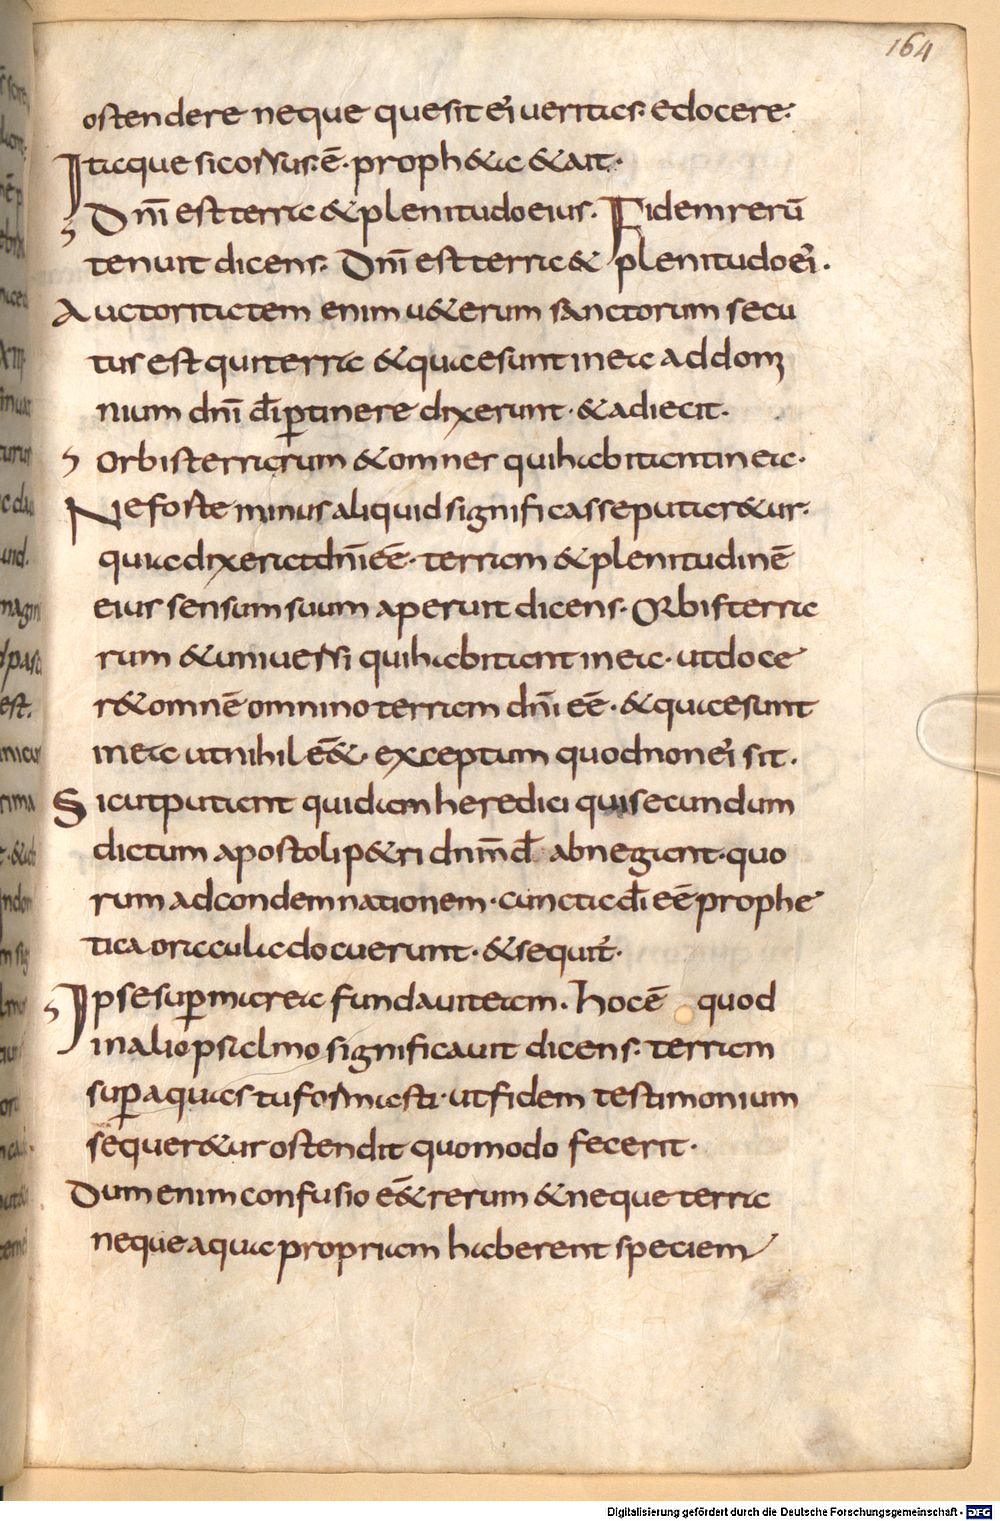 164
ostendere neque quesit ei ueritas. edocere.
Itaque si cohsus. ē. propheta & ait.
Dn̄i est terra & plenitudo eius. Fidem rerū
tenuit dicens. Dn̄i est terra & plenitudo ei.
Auctoritatem enim u&erum sanctorum secu
tus est qui terra & quae sunt in ea ad domi
nium dn̄i dī ptinere dixerunt. & adiecit.
Orbis terrarum & omnes qui habitant in ea.
Ne foste minus aliquid significasse putar&ur.
quia dixerat dn̄i eē. terram & plenitudinē
eius sensum suum aperuit dicens. Orbis terra
rum & uniuersi qui habitant in ea. ut doce
r& omnē omnino terram dn̄i eē. & quae sunt
in ea ut nihil eē&. exceptum quod non ei sit.
Sicut putant quidam heredici qui secundum
dictum apostoli p&ri dnm̄ dm̄ abnegant. quo
rum ad condemnationem. cuncta dī eē prophe
tica oracula docuerunt. & sequit.
Ipse sup maria fundauit eam. hoc ē quod
in alio psalmo significauit dicens. terram
sup aquas tu formasti. ut fidem testimonium
sequer&ur ostendit quomodo fecerit.
Dum enim confusio eē& rerum & neque terra
neque aquae propriam haberent speciem
Digitalisierung gefördert durch die Deutsche Forschungsgemeinschaft - DFG